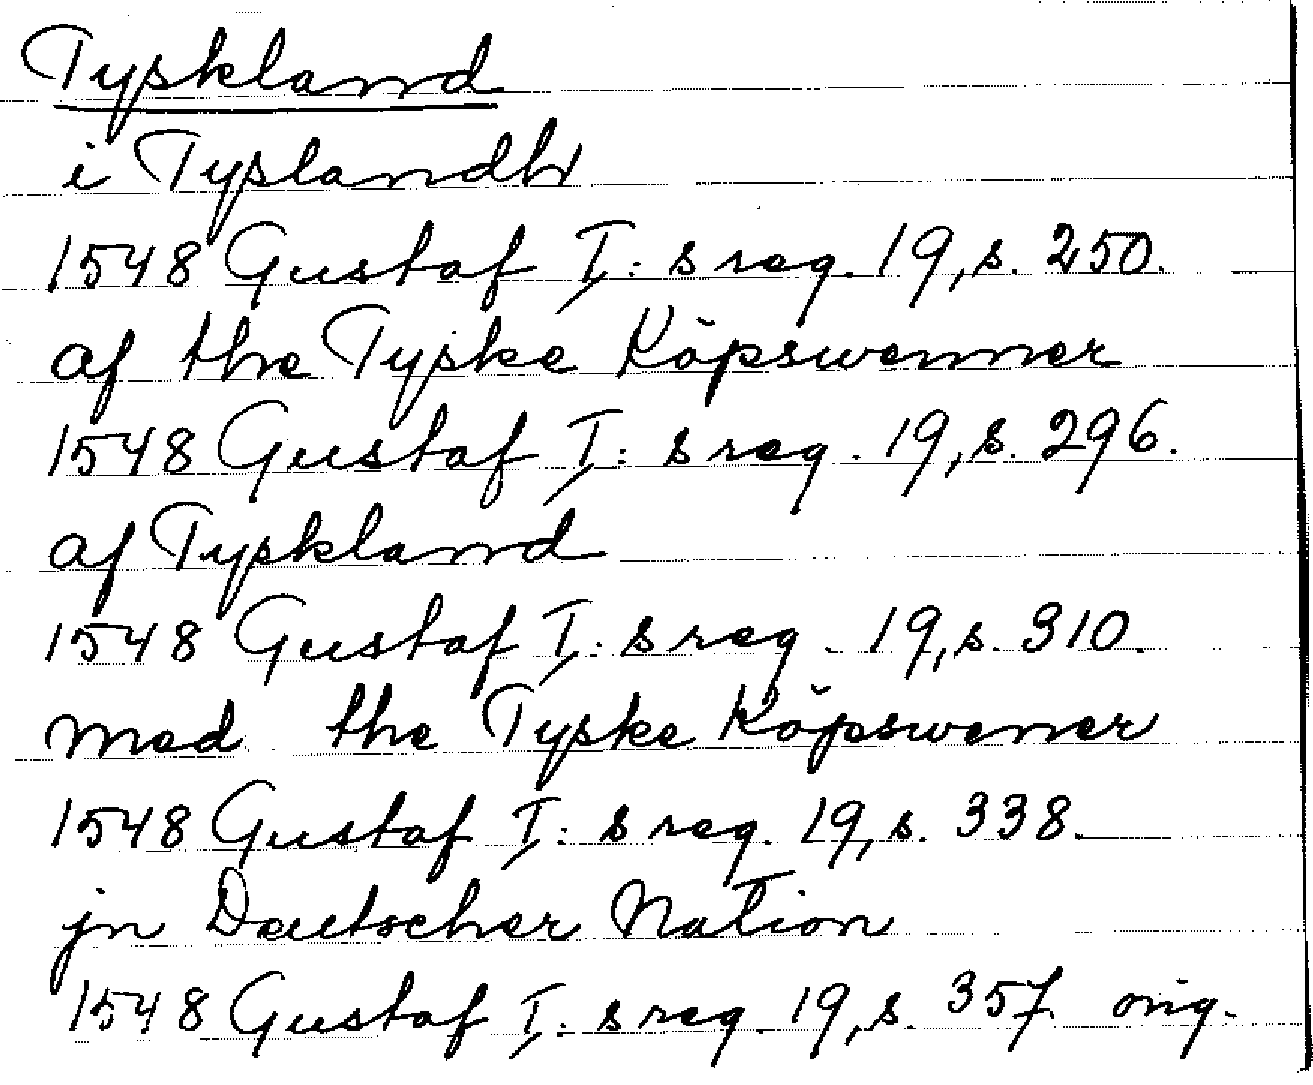 Tyskland
i Tyslandh
1548 Gustaf I:s reg. 19, s. 250.
af the Tyske Köpswenner
1548 Gustaf I:s reg. 19, s. 296.
af Tyskland
1548 Gustaf I:s reg. 19, s. 310.
med the Tyske Köpswenner
1548 Gustaf I:s reg. 19, s. 338.
jn Deutscher Nation
1548 Gustaf I:s reg. 19, s. 357 orig.